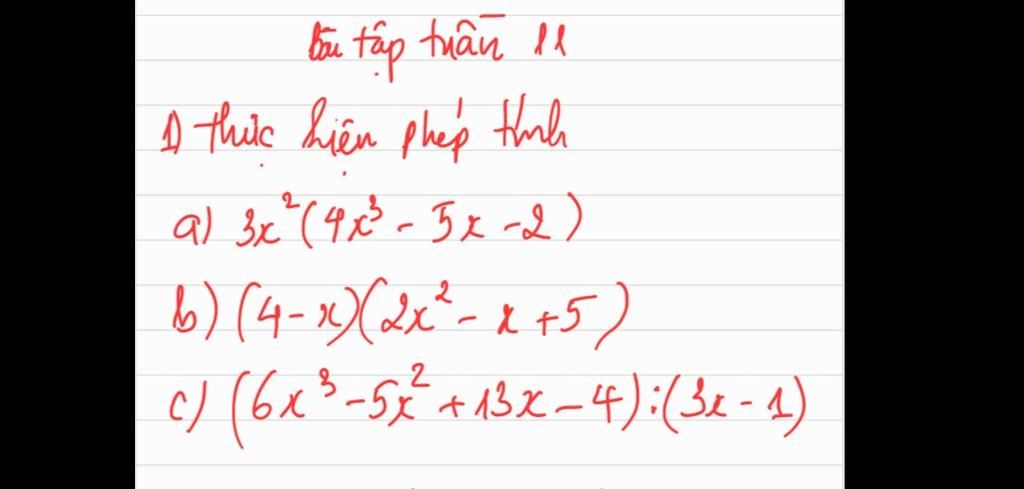 Bài tập tuần 11
1) thực hiện phép tính
a) 3x²(4x³ - 5x - 2)
b) (4 - x)(2x² - x + 5)
c) (6x³ - 5x² + 13x - 4) : (3x - 1)